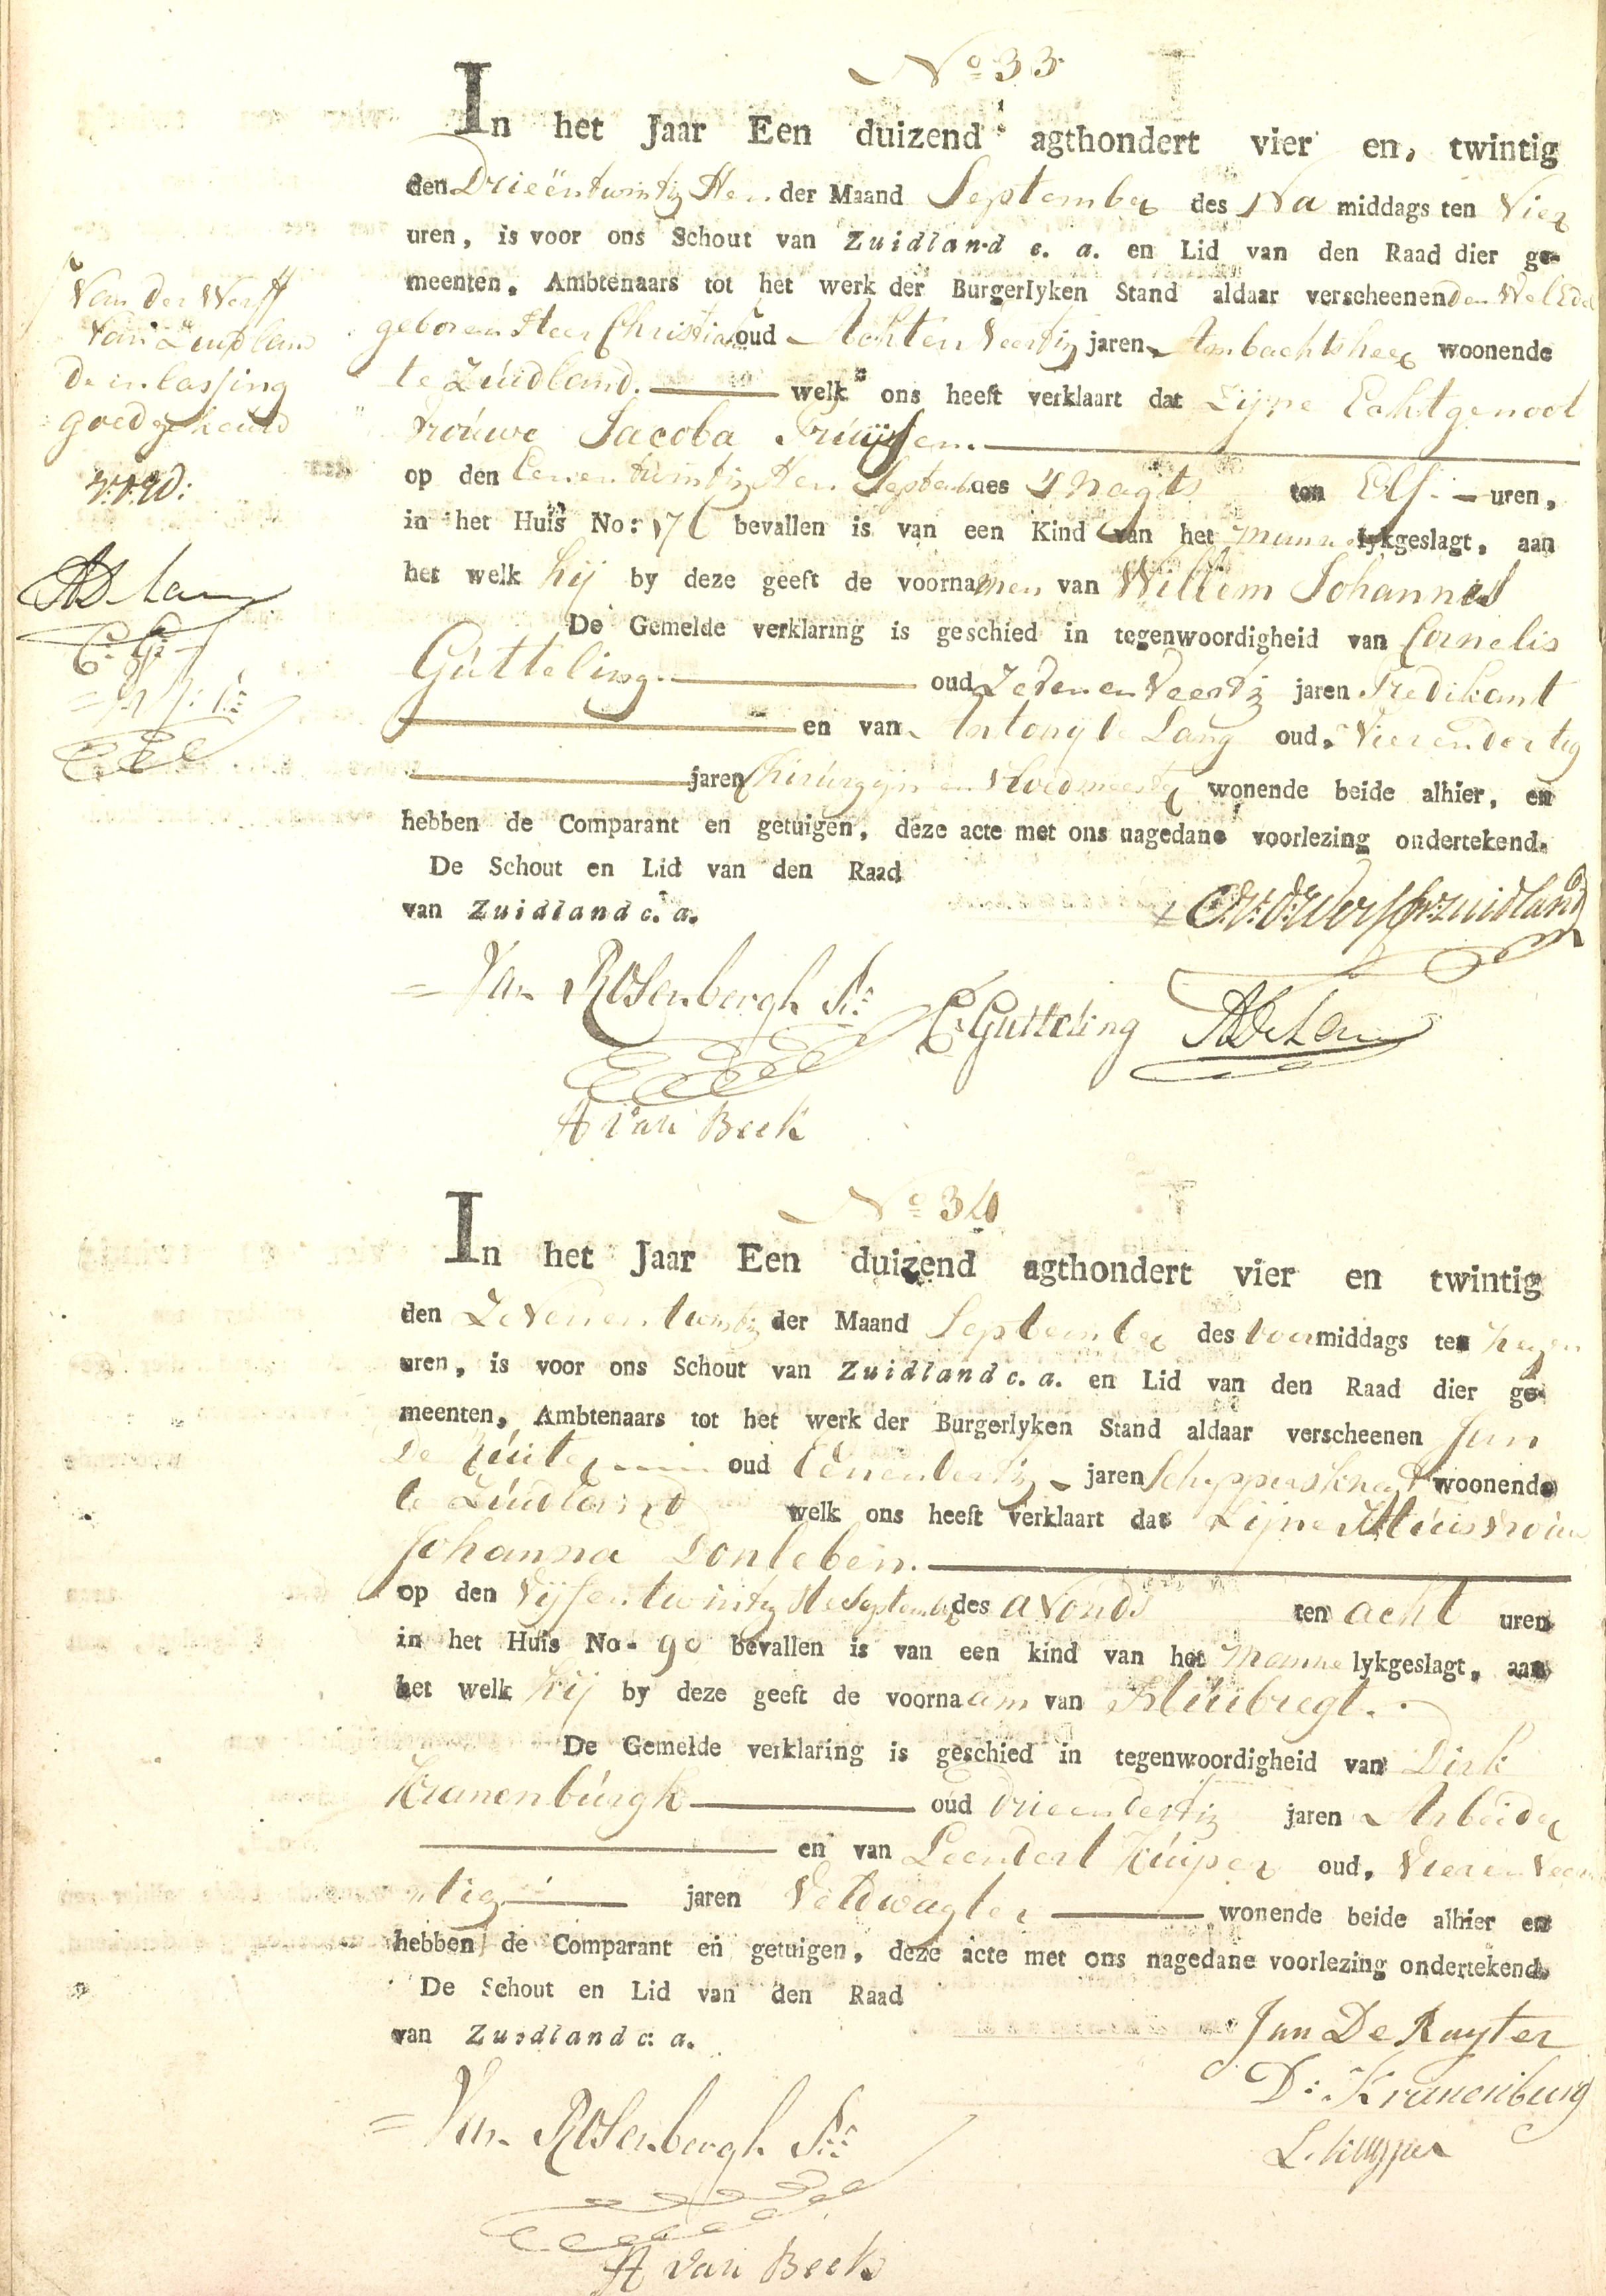 No 33
In het Jaar Een duizend agthondert vier en, twintig
den Drieëntwintigsten der Maand September des Na middags ten Vier
uren, is voor ons Schout van Zuidland c. a. en Lid van den Raad dier ge-
meenten, Ambtenaars tot het werk der Burgerlyken Stand aldaar verscheenen den WelEdel
geboren Heer Christiaan oud Achten Veertig jaren Ambachtsheer woonende
te Zuidland. welk ons heeft verklaart dat Zijne Echtgenoot
Vrouwe Jacoba
op den Eenentwintigsten September des S nagts ten Elf uren,
in het Huis No: bevallen is van een Kind van het manne lykgeslagt, aan
het welk hij by deze geeft de voornamen van Willem Johannes
De Gemelde verklaring is geschied in tegenwoordigheid van Cornelis
Gutteling. oud Zeven en Veertig jaren Predikant
en van Antonij de Lang oud, Vierendertig
jaren Chirurgijn en Vroedmeester wonende beide alhier, en
hebben de Comparant en getuigen, deze acte met ons nagedane voorlezing ondertekend.
De Schout en Lid van den Raad
van Zuidland c. a.
van der Werff
van Zuidland
de inlassing
goedgekeurd
C: G:
C. v. d. Werff van Zuidland
Van Rosenbergh Sr:
C. Gutteling
A De Lang
A van Beek
No 34
In het Jaar Een duizend agthondert vier en twintig
den Zevenentwintig der Maand September des voormiddags ten negen
uren, is voor ons Schout van Zuidland c. a. en Lid van den Raad dier ge-
meenten, Ambtenaars tot het werk der Burgerlyken Stand aldaar verscheenen Jan
De Ruiter oud Eenendertig jaren Schippersknegt woonende
te Zuidland welk ons heeft verklaart dat Zijne Huisvrouw
Johanna Donleben.
op den Vijfentwintigste September des avonds ten acht uren
in het Huis No. 90 bevallen is van een kind van het manne lykgeslagt, aan
het welk hij by deze geeft de voornaam van Huibregt.
De Gemelde verklaring is geschied in tegenwoordigheid van Dirk
Kranenburgh oud Drieendertig jaren Arbeider
en van Leendert Kuiper oud, Vier en Veer
tig jaren Veldwagter wonende beide alhier en
hebben de Comparant en getuigen, deze acte met ons nagedane voorlezing ondertekend.
De Schout en Lid van den Raad
van Zuidland c. a.
Jan De Ruyter
D: Kranenburg
L. Kuyper
Van Rosenbergh Sr:
A van Beek